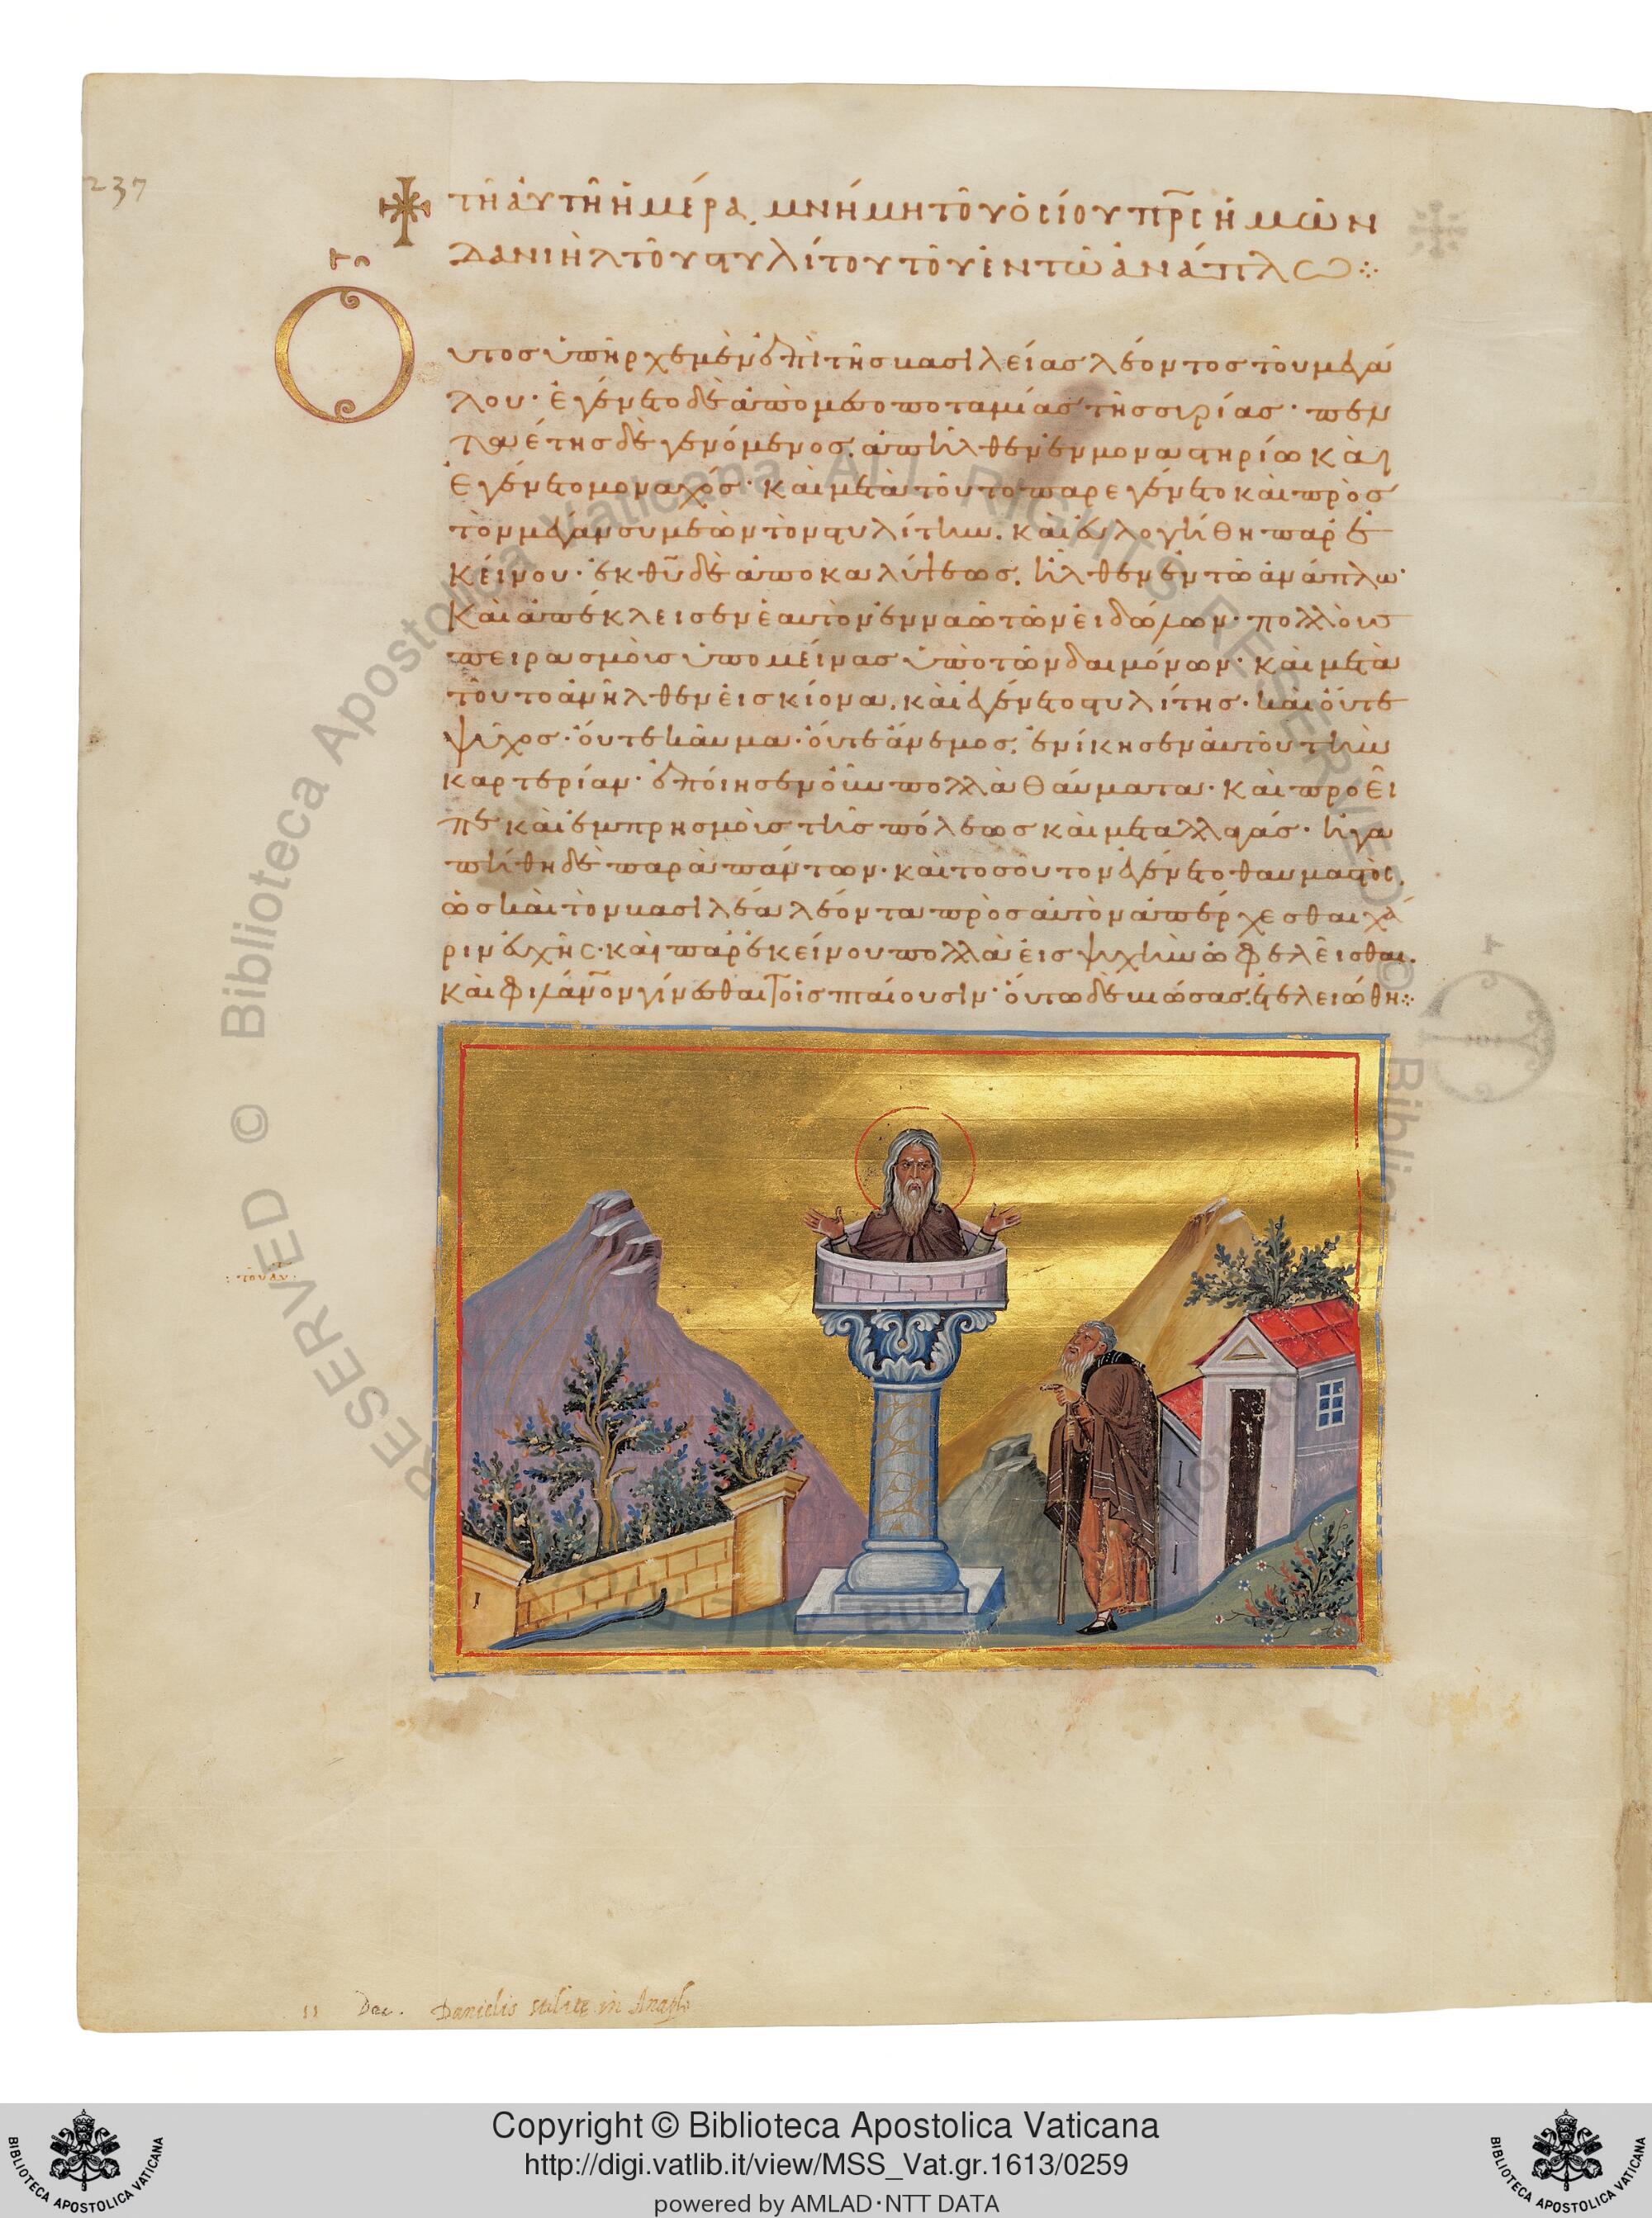 237
τῆ αὐτῆ ἡμέρα, μνήμη τοῦ ὁσίου πρς ἡμῶν
Δανιὴλ τοῦ στυλίτου τοῦ ἐν τῶ ἀνάπλω
Οὗτος ὑπῆρχε μὲν ἐπὶ τῆς βασιλείας λέοντος τοῦ μεγά
λου· ἐγένετο δὲ ἀπὸ μεσοποταμίας τῆς συρίας· πεν
ταέτης δὲ γενόμενος, ἀπῆλθεν ἐν μοναστηρίω καὶ
ἐγένετο μοναχός· καὶ μετὰ τοῦτο παρεγένετο καὶ πρὸς
τὸν μέγαν συμεὼν τὸν στυλίτην, καὶ εὐλογήθη παρ' ἐ
κείνου· ἐκ θῦ δὲ ἀποκαλύψεως, ἦλθεν ἐν τῶ ἀνάπλω·
καὶ ἀπέκλεισεν ἑαυτὸν ἐν ναῶ τῶν εἰδώλων· πολλοὺς
πειρασμοὺς ὑπομείνας ὑπὸ τῶν δαιμόνων· καὶ μετὰ
τοῦτο ἀνῆλθεν εἰς κίονα, καὶ ἐγένετο στυλίτης· καὶ οὔτε
ψύχος· οὔτε καῦμα· οὔτε ἄνεμος, ἐνίκησεν αὐτοῦ τὴν
καρτερίαν· ἐποίησεν οὖν πολλὰ θαύματα· καὶ προεῖ
πε καὶ ἐμπρησμοὺς τῆς πόλεως καὶ μεταλλαγάς· ἠγα
πήθη δὲ παρὰ πάντων· καὶ τοσοῦτον ἐγένετο θαυμαστὸς,
ὡς καὶ τὸν βασιλέα λέοντα πρὸς αὐτὸν ἀπέρχεσθαι χά
ριν εὐχῆς· καὶ παρ' ἐκείνου πολλὰ εἰς ψυχὴν ὠφελεῖσθαι.
καὶ φιλάνον γίνεσθαι τοῖς πταίουσιν· οὕτω δὲ βιώσας, ἐτελειώθη
11 Dec. Danielis stilitę in Anaplo
Biblioteca Apostolica Vaticana ALL RIGHTS RESERVED ©
Copyright © Biblioteca Apostolica Vaticana
http://digi.vatlib.it/view/MSS_Vat.gr.1613/0259
powered by AMLAD·NTT DATA
BIBLIOTECA APOSTOLICA VATICANA
BIBLIOTECA APOSTOLICA VATICANA